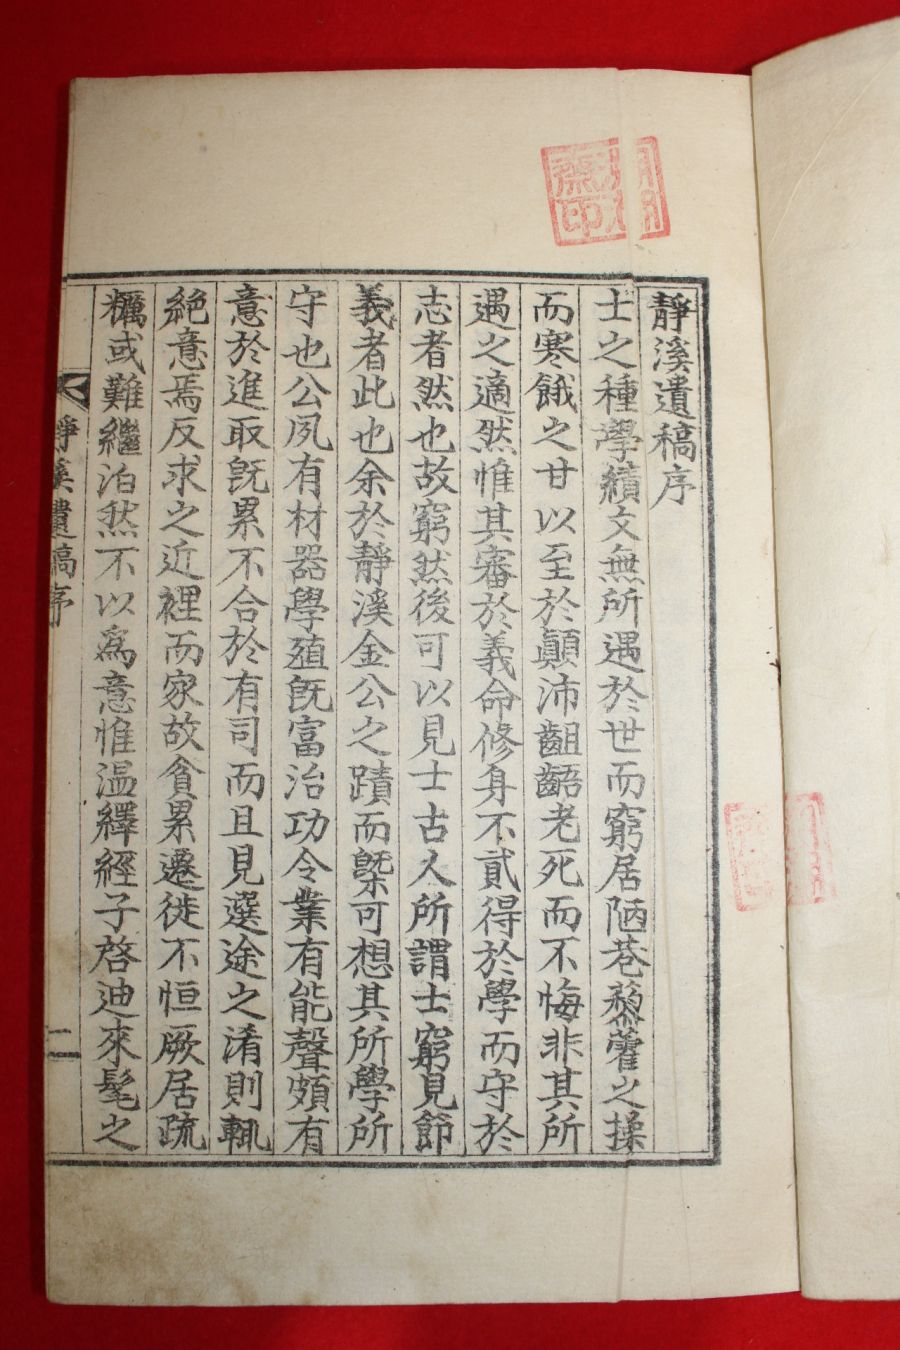 靜溪遺稿序
士之種學績文無所遇於世而窮居陋巷藜藿之操
而寒餓之甘以至於顚沛齟齬老死而不悔非其所
遇之適然惟其審於義命修身不貳得於學而守於
志者然也故窮然後可以見士古人所謂士窮見節
義者此也余於靜溪金公之蹟而槩可想其所學所
守也公夙有材器學殖旣富治功令業有能聲頗有
意於進取旣累不合於有司而且見選途之淆則輒
絶意焉反求之近裡而家故貧累遷徙不恒厥居疏
糲或難繼泊然不以爲意惟溫繹經子啓迪來髦之
靜溪遺稿序